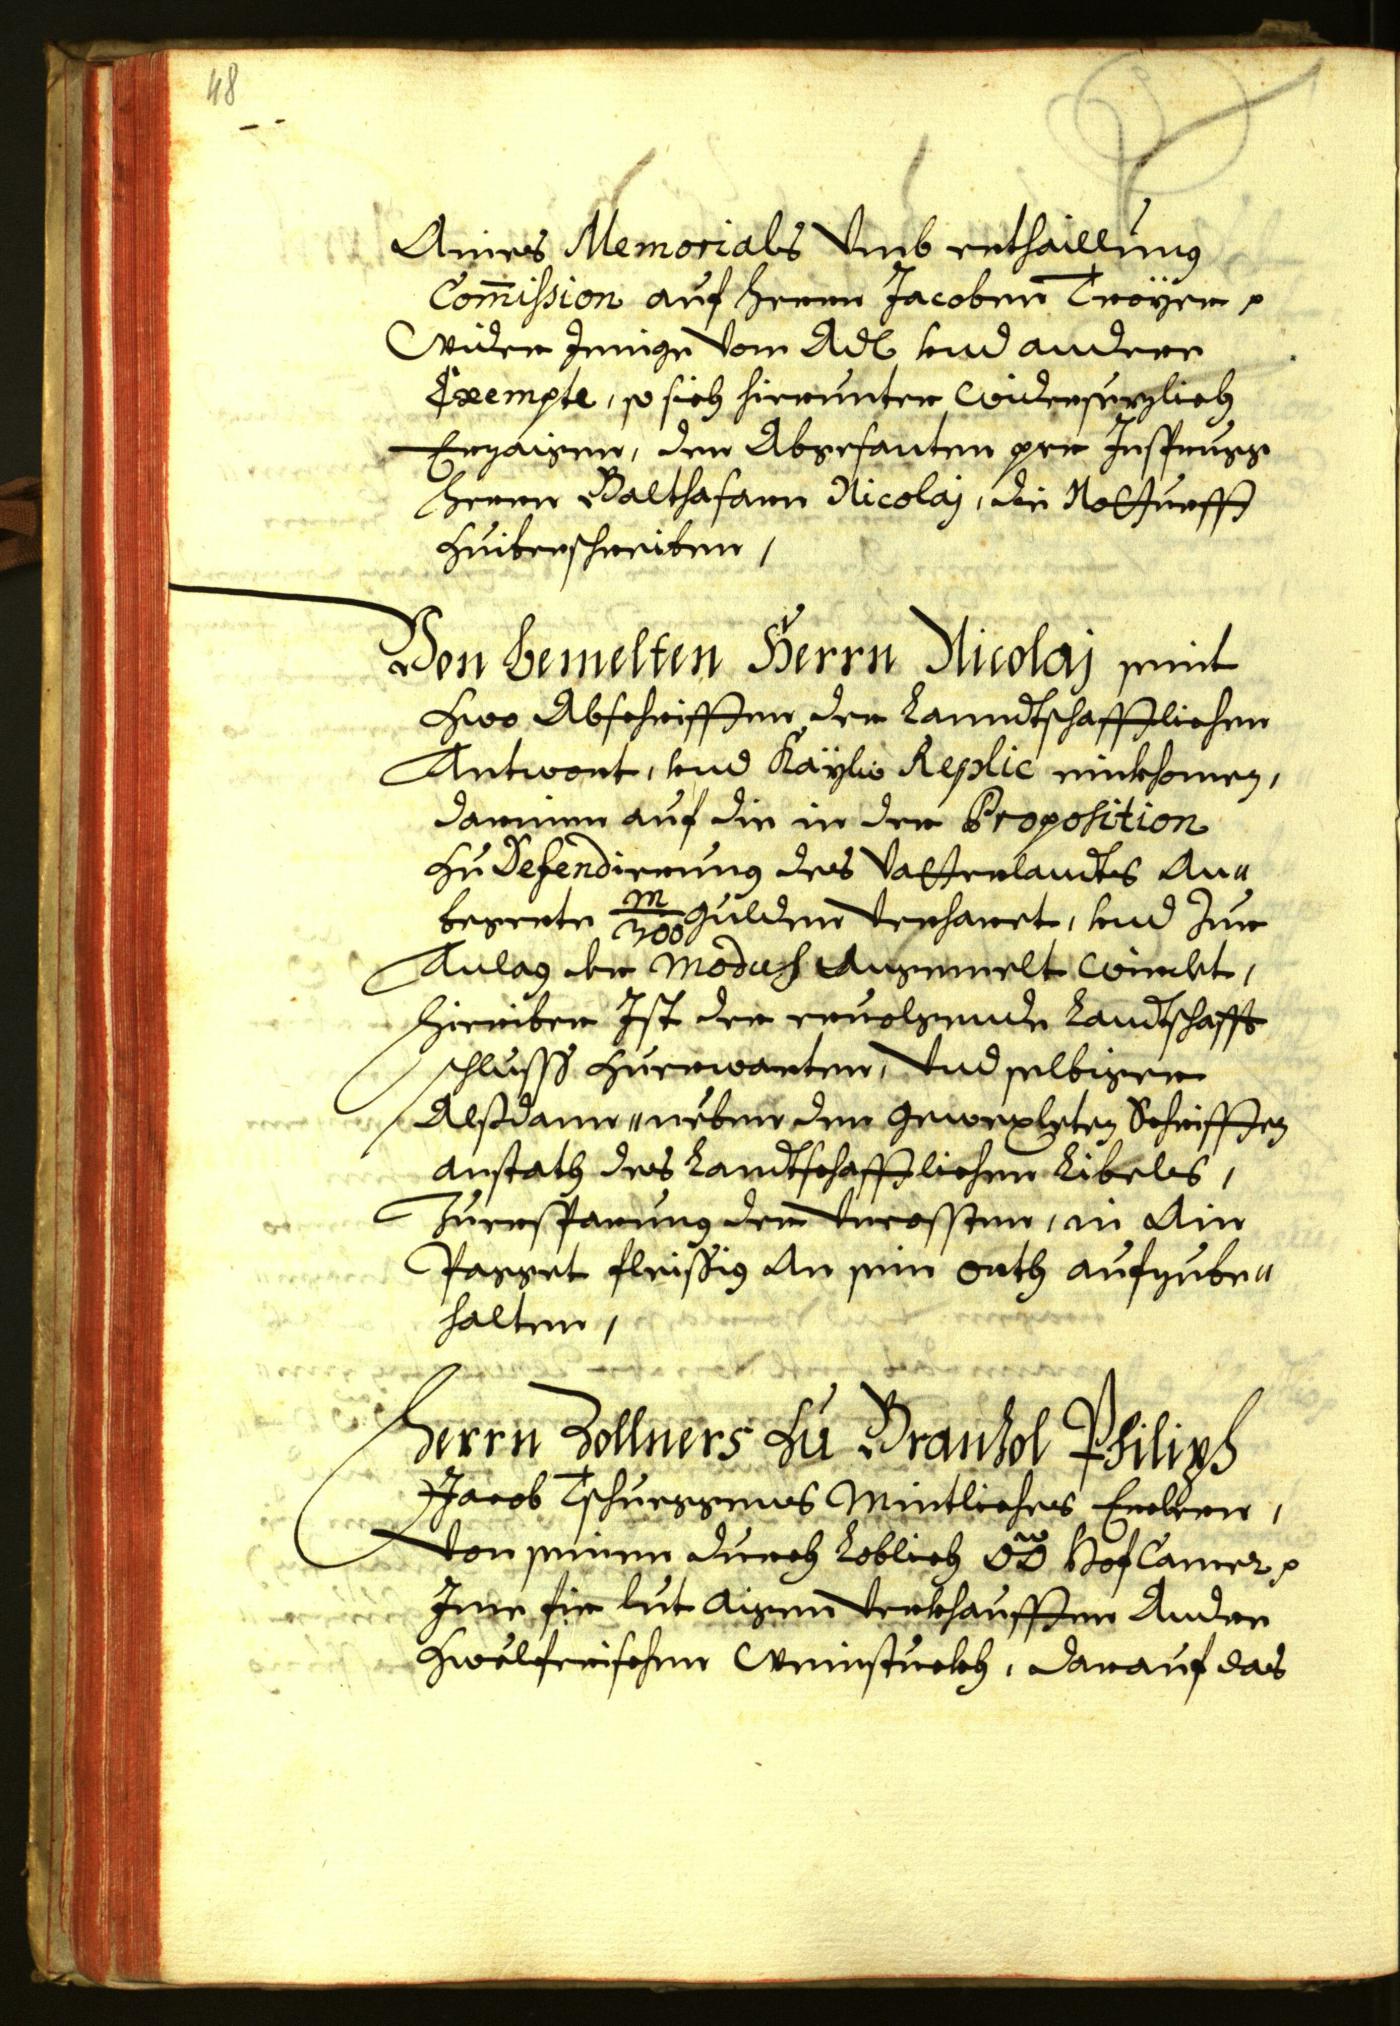 48
Aines Memorials Vmb erthaillung
Com̄ission auf herrn Jacoben Troÿer,
Wider Jenige Vom Adl, vnd andere
Exempte, so sich hierunter widersezlich
Erzaigen, den Abgesanten per Insprugg
herrn Balthasarn Nicolaj, die Notturfft
zuiberschreiben,
Von bemelten Herrn Nicolaj seint
zwo Abschrifften, der Lanndtschafftlichen
Antwort, vnd Kaÿl: Replic einkhomen,
darinnen auf die in der Proposition
zu Defendierung des Vatterlandts An"
begerte m/300 Gulden Verharret, vnd zur
Anlag der Modus Angemelt wirdet,
hieriber Ist der ervolgende Landtschaffts
schlusß zuerwarten, Vnd selbiger
Alßdann " neben den gewexleten Schrifften
anstath des Landtschafftlichen Libels,
zuersparung der Vncossten, in Ain
Pagget fleissig An sein orth aufzube"
halten,
Herrn Zollners zu Branzol Philips
Jacob Tschuggenes Mintliches
Von seinen durch Loblich OÖ HofCamer,
Ime fir Lut aigen Verkhaufften Andre
Zwelferischen Weinstuckh, darauf das